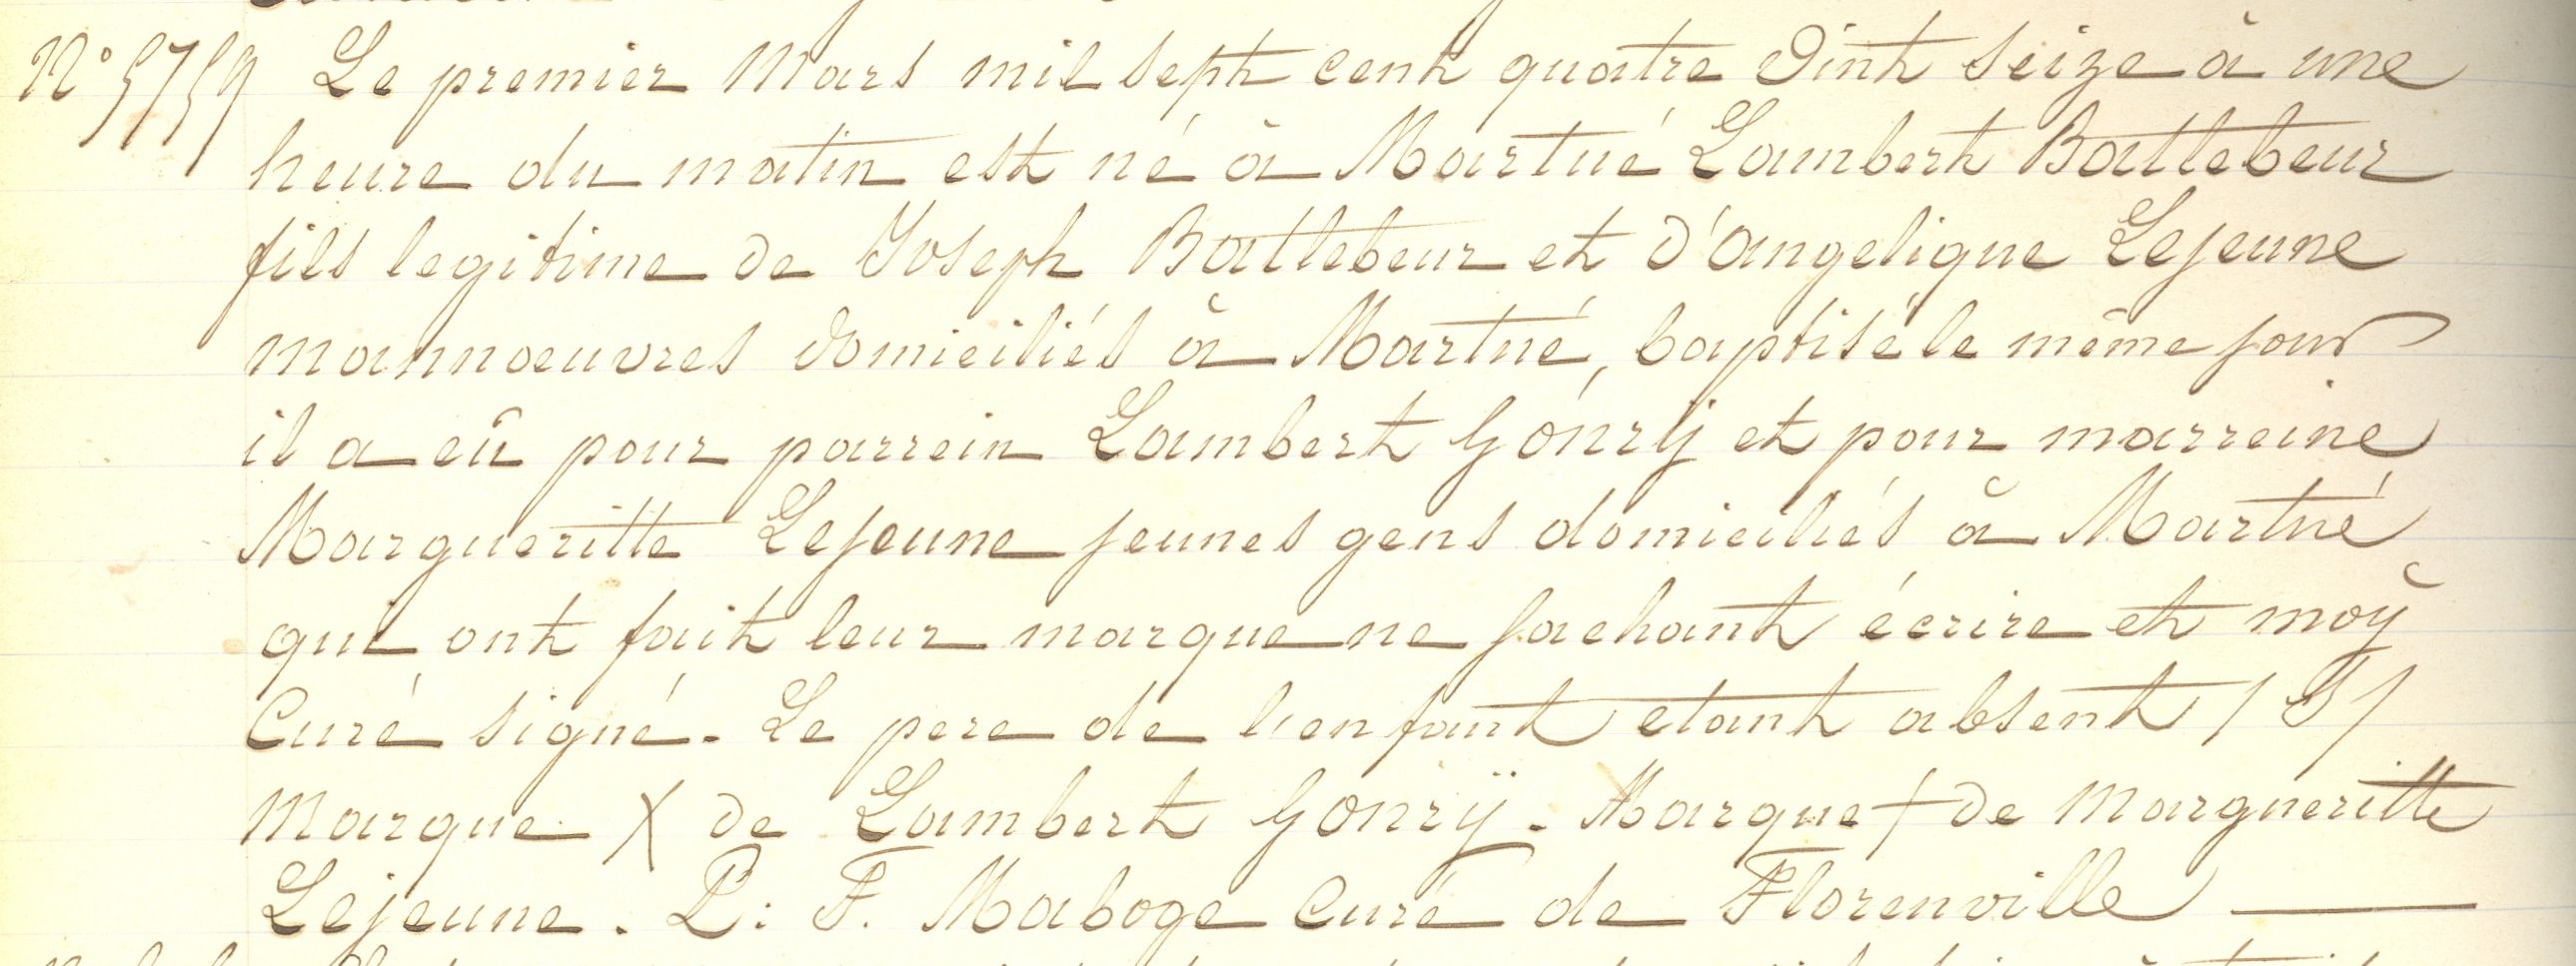 N° 5759 Le premier Mars mil sept cent quatre vint seize à une
heure du matin est né à Martué Lambert Battebeur
fils legitime de Joseph Battebeur et d'angelique Lejeune
mannoeuvres domiciliés à Martué, baptisé le même jour
il a eû pour parrein Lambert Gonrÿ et pour marreine
Margueritte Lejeune jeunes gens domiciliés à Martué
qui ont fait leur marque ne sachant écrire et moÿ
Curé signé. Le pere de l'enfant etant absent / S /
Marque X de Lambert Gonrÿ. Marque + de Margueritte
Lejeune. P: F. Maboge Curé de Florenville